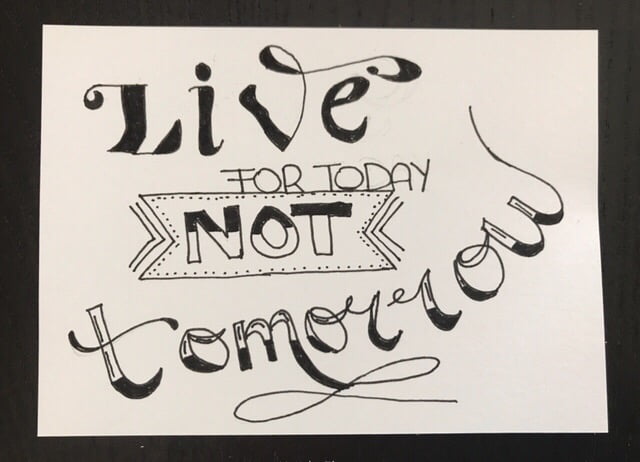 Live
FOR TODAY
NOT
tomorrow